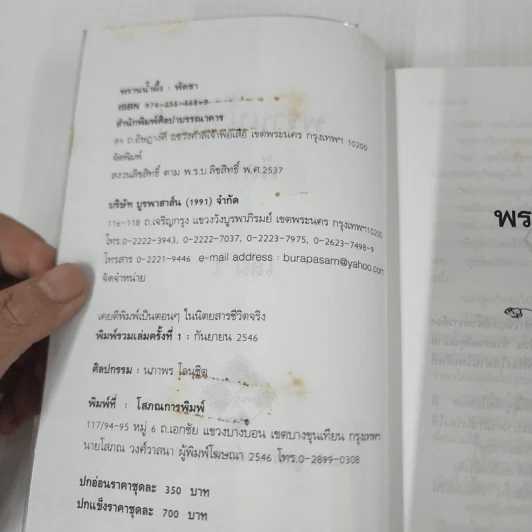 พรานน้ำผึ้ง : พัดชา
ISBN 974-255-
สำนักพิมพ์ศิลปาบรรณาคาร
ถ.อัษฎางค์ แขวงศาลเจ้าพ่อเสือ เขตพระนคร กรุงเทพฯ 10200
จัดพิมพ์
สงวนลิขสิทธิ์ ตาม พ.ร.บ.ลิขสิทธิ์ พ.ศ.2537
บริษัท บูรพาสาส์น (1991) จำกัด
116-118 ถ.เจริญกรุง แขวงวังบูรพาภิรมย์ เขตพระนคร กรุงเทพฯ10200
โทร.0-2222-3943, 0-2222-7037, 0-2223-7975, 0-2623-7498-9
โทรสาร 0-2221-9446 e-mail address : burapasarn@yahoo.com
จัดจำหน่าย
เคยตีพิมพ์เป็นตอนๆ ในนิตยสารชีวิตจริง
พิมพ์รวมเล่มครั้งที่ 1 : กันยายน 2546
ศิลปกรรม : นภาพร โลนุชิต
พิมพ์ที่ : โสภณการพิมพ์
117/94-95 หมู่ 6 ถ.เอกชัย แขวงบางบอน เขตบางขุนเทียน กรุงเทพฯ
นายโสภณ วงศ์วาสนา ผู้พิมพ์โฆษณา 2546 โทร.0-2899-0308
ปกอ่อนราคาชุดละ 350 บาท
ปกแข็งราคาชุดละ 700 บาท
พร